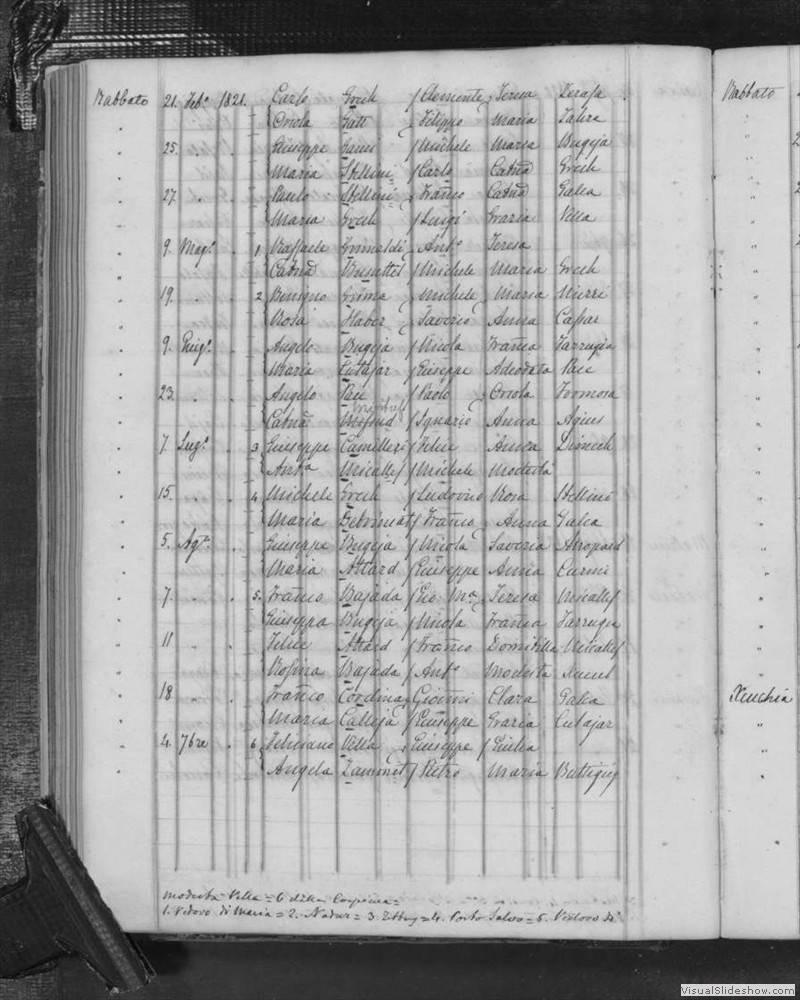 Rabbato 21. Feb. 1821. Carlo Grech / Clemente Teresa Zerafa
Oriola Gatt Filippo Maria Tabre
25. Giuseppe / Michele Maria Bugeja
Maria Stellini / Carlo Catnā Grech
27. Paulo Stellini Franco Catnā Galea
Maria Grech / Luigi Grazia Vella
9. Mago. 1 Raffaele Grimaldi Anto Teresa
Catnā Busuttil / Michele Maria Grech
19. 2 Benigno Grima Michele Maria
Rosa Haber / Saverio Anna Cassar
9. Giugo. Angelo Bugeja / Nicola Franca Farrugia
Maria Cutajar / Giuseppe Adeodata Pace
23. Angelo Pace / Paolo Oriola Formosa
Catnā / Ignazio Anna Agius
7. Lugo. 3 Giuseppe Camilleri / Felice Anna
Anta Micallef / Michele Modesta
15. 4 Michele Grech / Ludovico Rosa Stellini
Maria / Franco Anna Galea
5. Agto. Giuseppe Bugeja / Nicola Saveria
Maria Attard / Giuseppe Anna Curmi
7. 5. Franco Bajada / Gio. Ma Teresa Micallef
Giuseppa Bugeja / Nicola Franca Farrugia
11 Felice Attard / Franco Domitilla Micallef
Rosina Bajada / Anto Modesta
18 Franco Cordina Gionni Clara Galea
Maria Calleja / Giuseppe Grazia Cutajar
4. 7bre 6 Feliciano Vella Giuseppe / Giulia
Angela Zammit / Pietro Maria Buttigieg
Modesta Vella = 6 della
1. Vedovo di Maria = 2. Nadur = 3. = 4. Porto Salvo = 5. Vedovo di
Rabbato
Xeuchia
VisualSlideshow.com